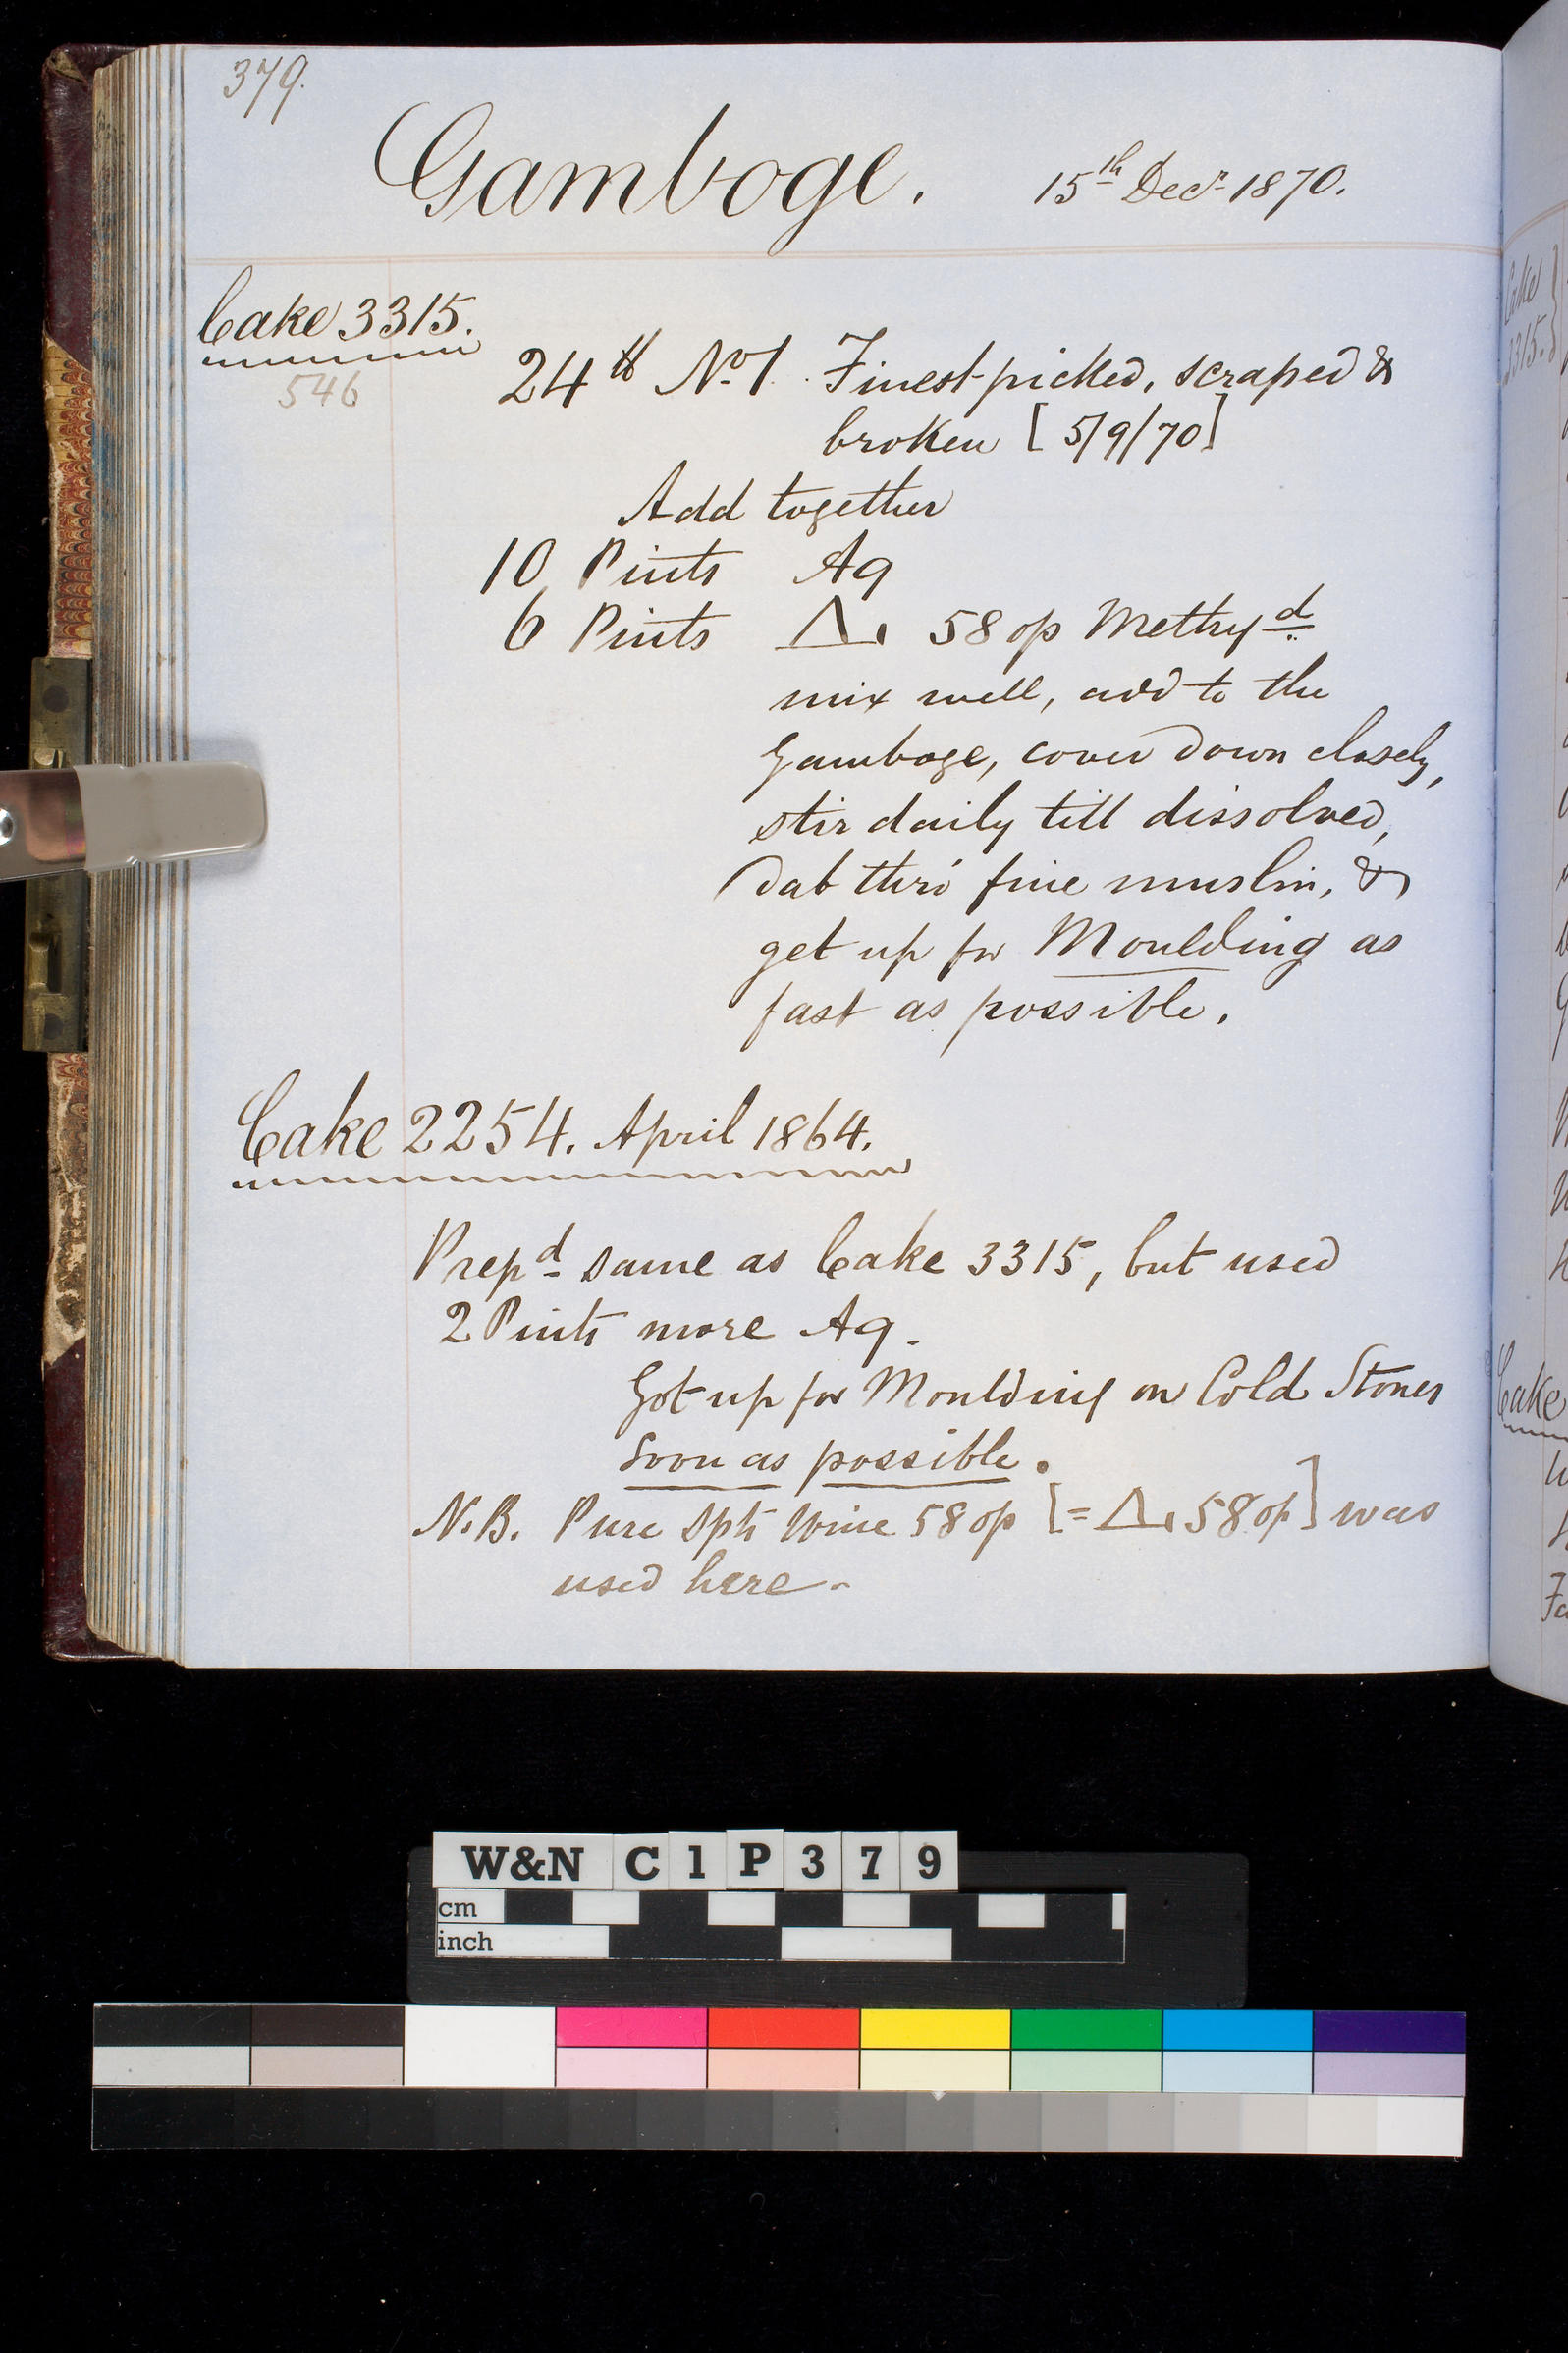 379.
Gamboge. 15th Decr 1870.
Cake 3315.
546
24 lb No 1. Finest picked, scraped &
broken [5/9/70]
Add together
10 Pints Aq
6 Pints Δ. 58 op Methyd
mix well, add to the
Gamboge, cover down closely,
stir daily till dissolved,
dab thro' fine muslin, &
get up for Moulding as
fast as possible.
Cake 2254. April 1864.
Prepd same as Cake 3315, but used
2 Pints more Aq.
Got up for Moulding on Cold Stones
soon as possible.
N.B. Pure Spts Wine 58 op [= Δ. 58 op] was
used here.
Cake
3315.
Cake
W&N C1P379
cm
inch